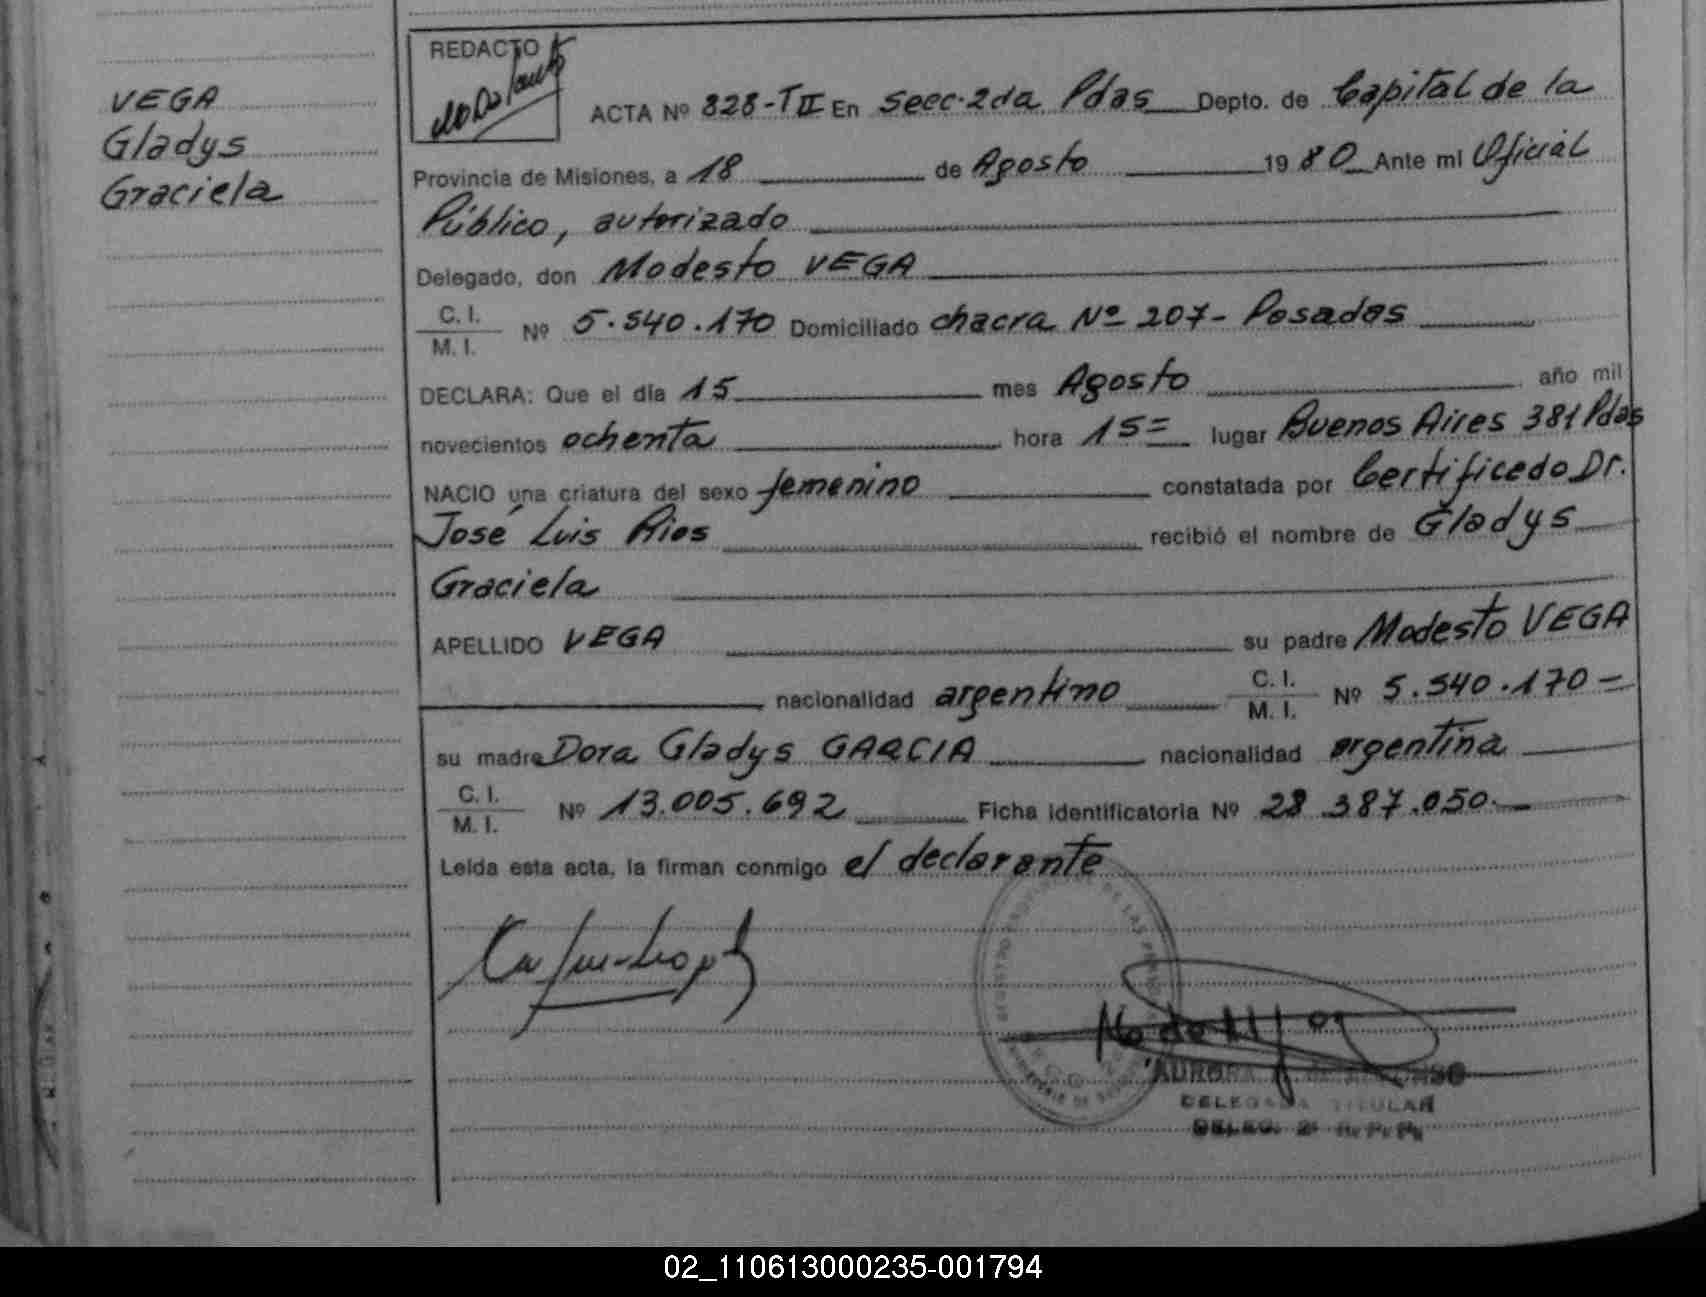 VEGA
Gladys
Graciela
REDACTO
ACTA Nº 828-TII En Secc. 2da Pdas Depto. de Capital de la
Provincia de Misiones, a 18 de Agosto 1980 Ante mi Oficial
Público, autorizado
Delegado, don Modesto VEGA
C. I.
M. I. Nº 5.540.170 Domiciliado chacra Nº 207- Posadas
DECLARA: Que el día 15 mes Agosto, año mil
novecientos ochenta hora 15= lugar Buenos Aires 381 Pdas
NACIO una criatura del sexo femenino constatada por Certificado Dr.
José Luis Rios recibió el nombre de Gladys
Graciela
APELLIDO VEGA su padre Modesto VEGA
, nacionalidad argentino C. I.
M. I. Nº 5.540.170-
su madre Dora Gladys GARCIA nacionalidad argentina
C. I.
M. I. Nº 13.005.692 Ficha Identificatoria Nº 28.387.050.-
Leída esta acta, la firman conmigo el declarante
AURORA
DELEGADA TITULAR
DELEG. 2ª
02_110613000235-001794